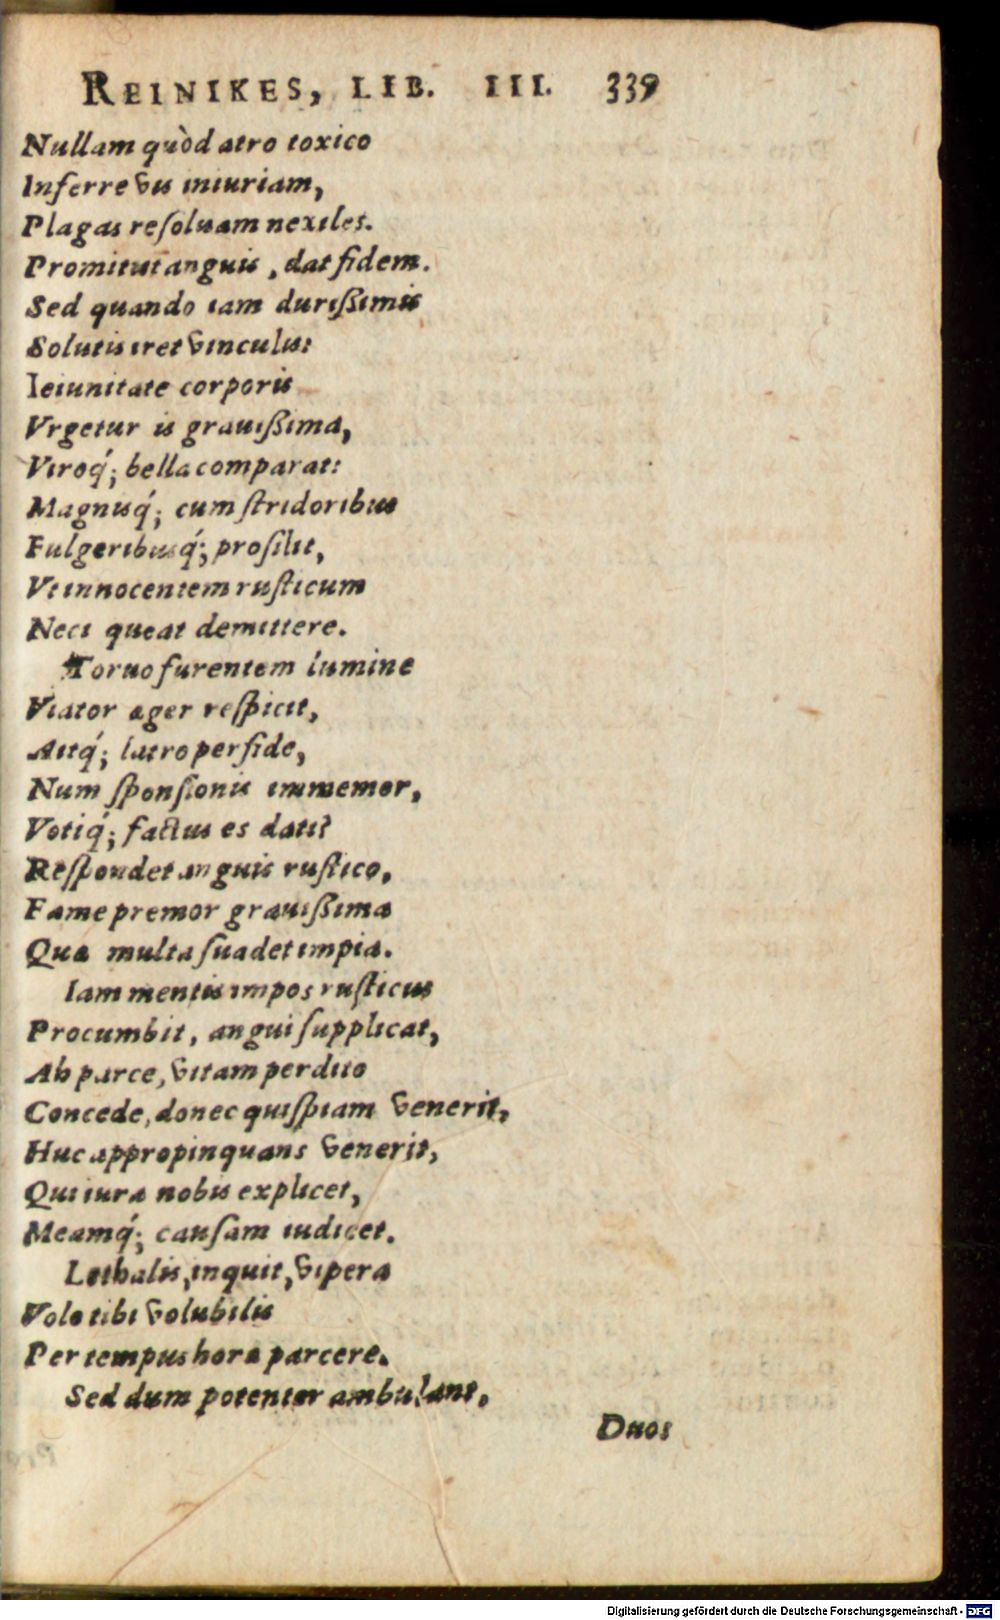 REINIKES, LIB. III. 339
Nullam quòd atro toxico
Inferre vis iniuriam,
Plagas reſoluam nexiles.
Promittit anguis, dat fidem.
Sed quando iam durißimis
Solutis iret vinculis:
Ieiunitate corporis
Vrgetur is grauißima,
Viroq́; bella comparat:
Magnisq́; cum ſtridoribus
Fulgeribusq́; proſilit,
Vt innocentem ruſticum
Neci queat demittere.
Toruo furentem lumine
Viator æger reſpicit,
Aitq́; latro perfide,
Num ſponſionis immemor,
Votiq́; factus es dati?
Reſpondet anguis ruſtico,
Fame premor grauißima
Quæ multa ſuadet impia.
Iam mentis impos ruſticus
Procumbit, angui ſupplicat,
Ah parce, vitam perdito
Concede, donec quiſpiam venerit,
Huc appropinquans venerit,
Qui iura nobis explicet,
Meamq́; cauſam iudicet.
Lethalis, inquit, vipera
Volo tibi volubilis
Per tempus horæ parcere.
Sed dum potenter ambulant,
Duos
Digitalisierung gefördert durch die Deutsche Forschungsgemeinschaft - DFG